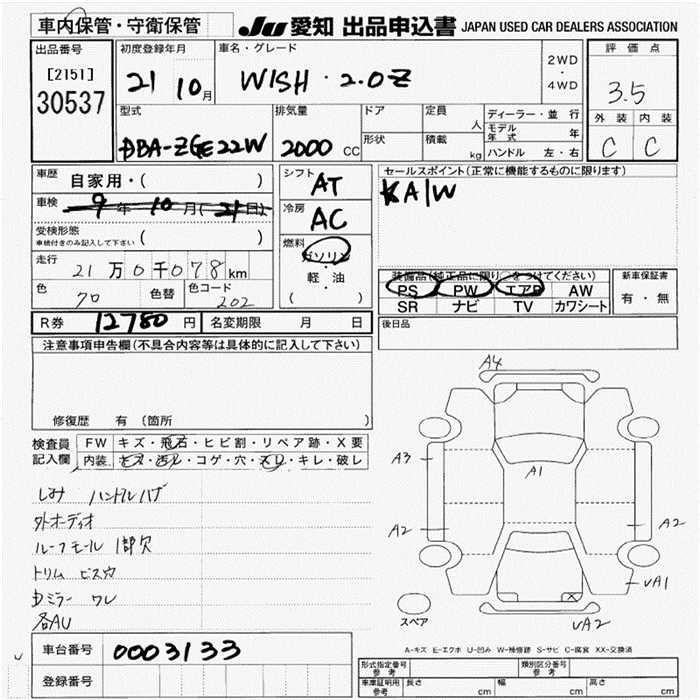 車内保管・守衛保管
JU 愛知 出品申込書 JAPAN USED CAR DEALERS ASSOCIATION
出品番号
[2151]
30537
初度登録年月
21 10月
車名・グレード
WISH ・ 2.0Z
2WD
・
4WD
評価点
3.5
外装 内装
C C
型式
DBA-ZGE22W
排気量
2000 CC
ドア
形状
定員 人
積載 kg
ディーラー・並行
モデル年式 年
ハンドル 左・右
車歴 自家用・( )
車検 9年 10月(21日)
受検形態
車検付きのみ記入して下さい ( )
走行 21万0千078km
色 色替 色コード
プロ 202
シフト AT
冷房 AC
燃料
ガソリン
・
軽・油
( )
セールスポイント(正常に機能するものに限ります)
KA/W
装備品(純正品に限り○をつけてください)
PS PW エアB AW
SR ナビ TV カワシート
新車保証書
有・無
R券 12780円 名変期限 月 日
後日品
注意事項申告欄(不具合内容等は具体的に記入して下さい)
修復歴 有 (箇所 )
検査員記入欄
FW キズ・飛石・ヒビ割・リペア跡・X要
内装 キズ・汚レ・コゲ・穴・スレ・キレ・破レ
しみ ハンドルハゲ
外オーディオ
ルーフモール 1部欠
トリム ビス穴
Dミラー ワレ
各AU
A4
A3
A1
A2 A2
A1
A2
スペア
A-キズ E-エクボ U-凹み W-補修跡 S-サビ C-腐食 XX-交換済
車台番号 0003133
登録番号
形式指定番号 参考
類別区分番号 参考
車庫証明用 参考 長さ cm 幅 cm 高さ cm